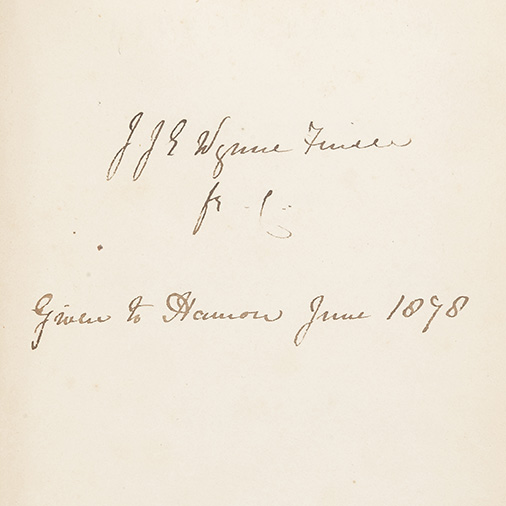 J J E Wynne
fr
Given to Hamon June 1878